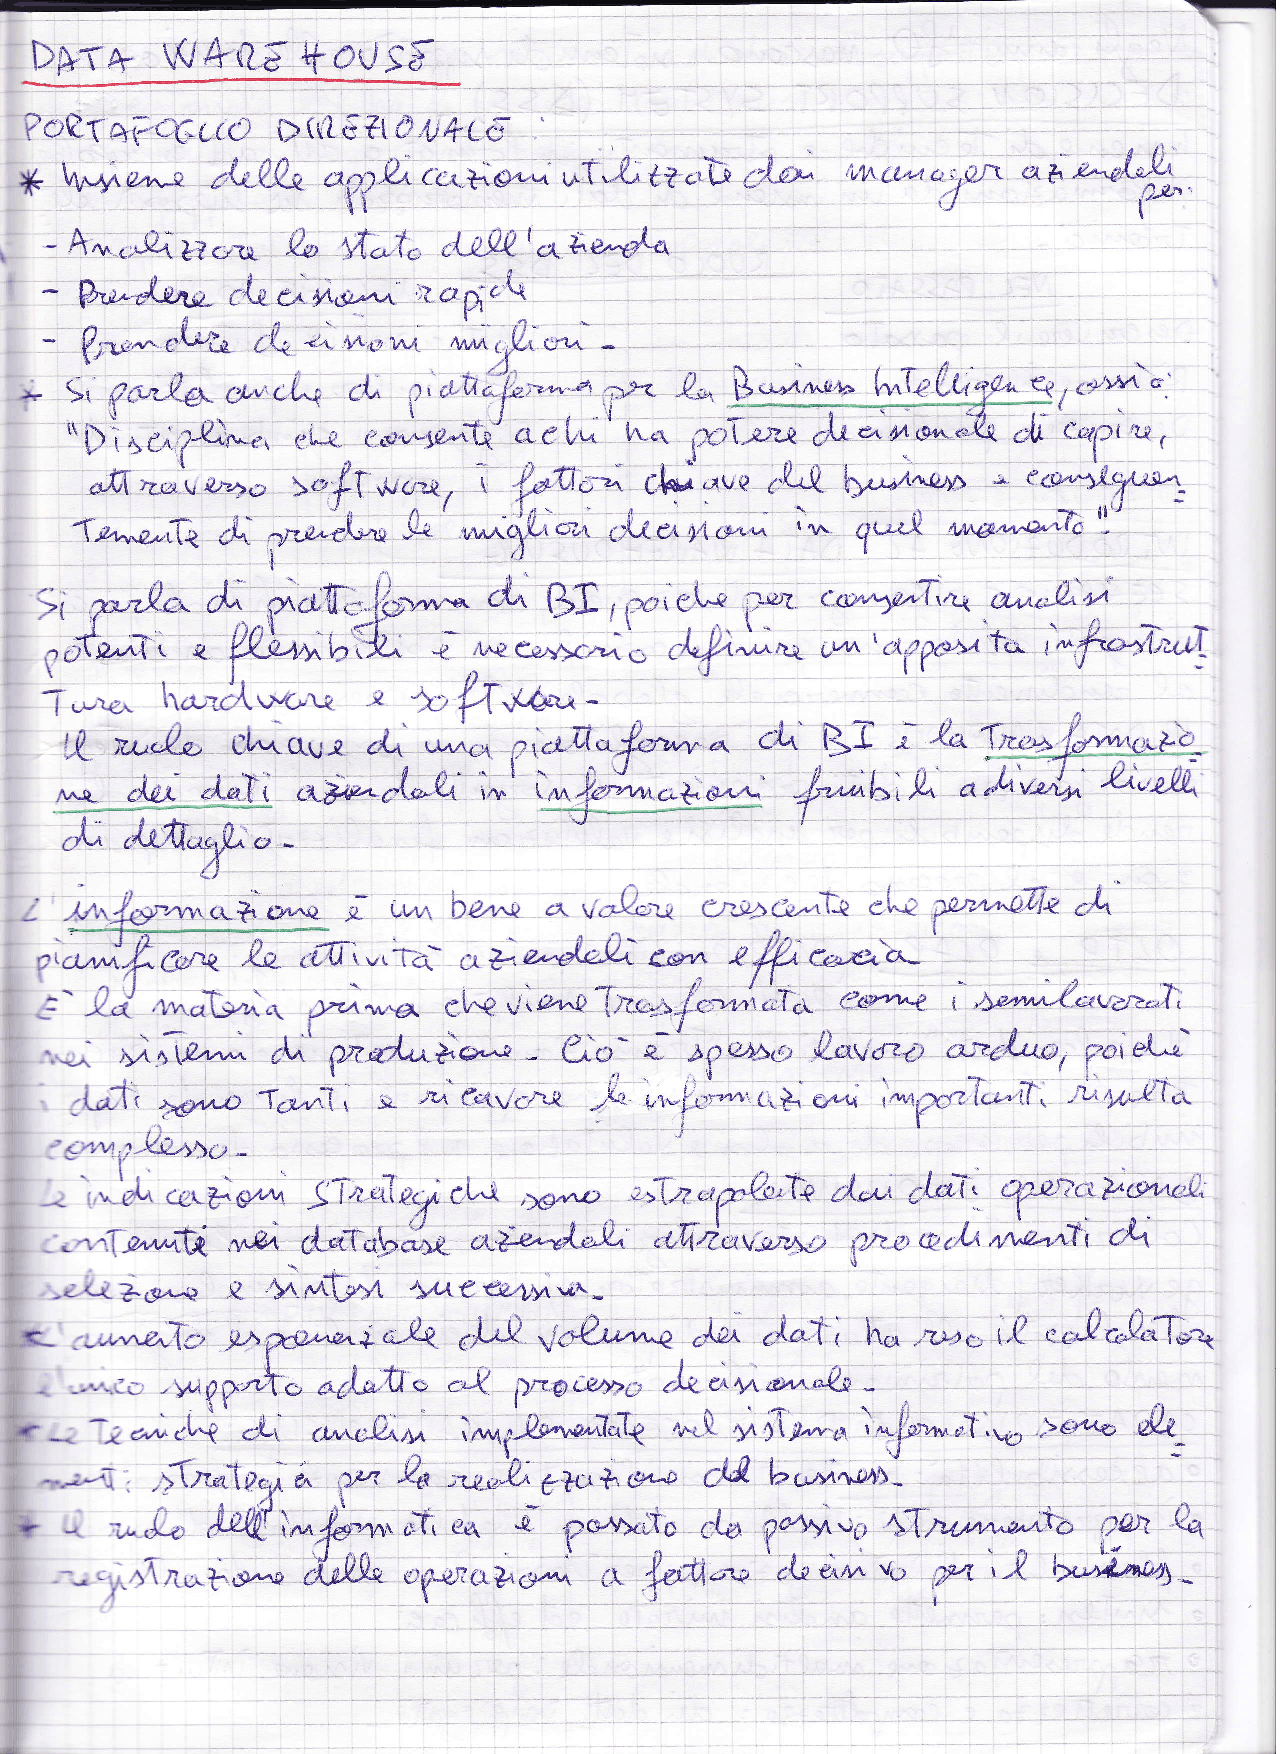 DATA WAREHOUSE
PORTAFOGLIO DIREZIONALE:
* Insieme delle applicazioni utilizzate dai manager aziendali
per:
- Analizzare lo stato dell'azienda
- Prendere decisioni rapide
- Prendere decisioni migliori -
* Si parla anche di piattaforma per la Business Intelligence, ossia:
"Disciplina che consente a chi ha potere decisionale di capire,
attraverso software, i fattori chiave del business e conseguen=
temente di prendere le migliori decisioni in quel momento".
Si parla di piattaforma di BI, poiche per consentire analisi
potenti e flessibili è necessario definire un'apposita infrastrut=
tura hardware e software -
Il ruolo chiave di una piattaforma di BI è la trasformazio
ne dei dati aziendali in informazioni fruibili a diversi livelli
di dettaglio -
L'informazione è un bene a valore crescente che permette di
pianificare le attività aziendali con efficacia -
E' la materia prima che viene trasformata come i semilavorati
nei sistemi di produzione - Ciò è spesso lavoro arduo, poichè
i dati sono tanti e ricavare le informazioni importanti risulta
complesso -
Le indicazioni strategiche sono estrapolate dai dati operazionali
contenuti nei database aziendali attraverso procedimenti di
selezione e sintesi successiva -
* L'aumento esponenziale del volume dei dati ha reso il calcolatore
l'unico supporto adatto al processo decisionale -
* Le tecniche di analisi implementate nel sistema informativo sono ele=
menti strategici per la realizzazione del business -
* Il ruolo dell'informatica è passato da passivo strumento per la
registrazione delle operazioni a fattore decisivo per il business -